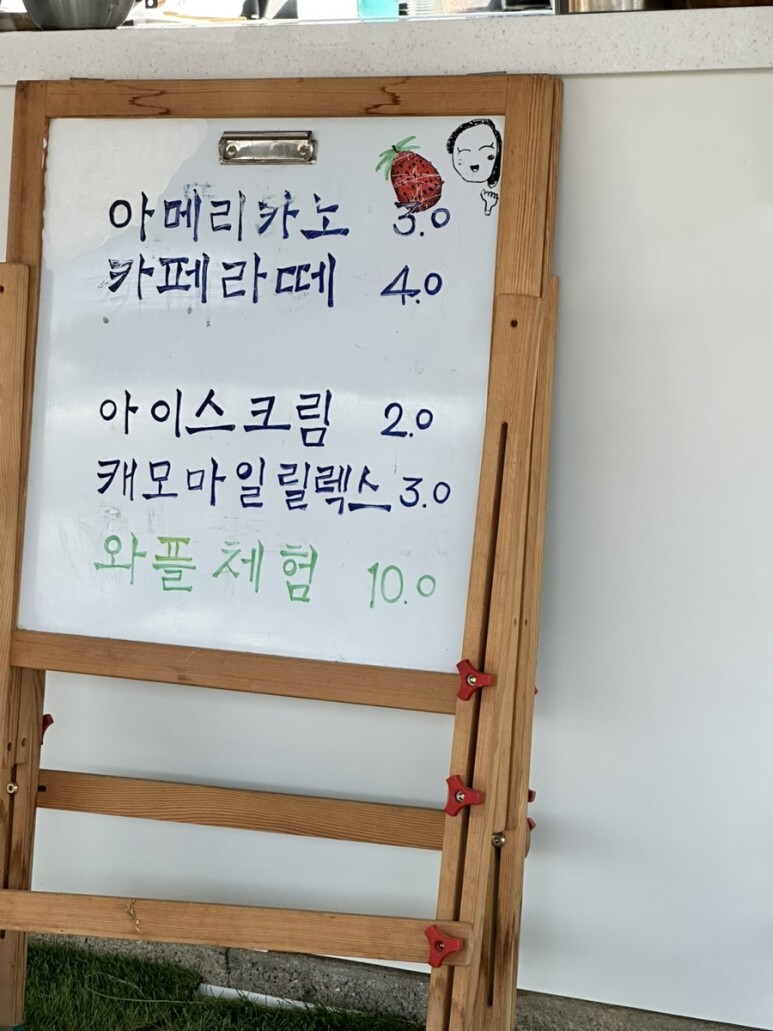 아메리카노 3.0
카페라떼 4.0
아이스크림 2.0
캐모마일릴렉스 3.0
와플체험 10.0